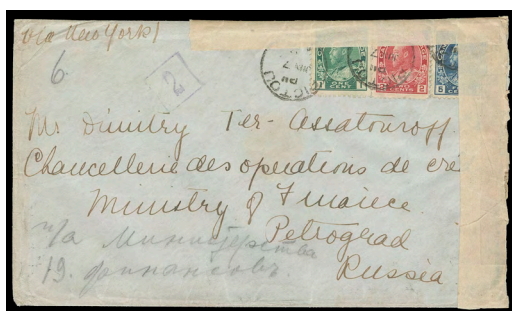 Via New York/
6
2
PICTOU
PM
7
CENT
2 CENTS 2
5
Mr Dimitry Ter-Assatouroff
Chancellerie des operations de cré
Ministry of Finance
Petrograd
Russia
Министерства
19. финансовъ.